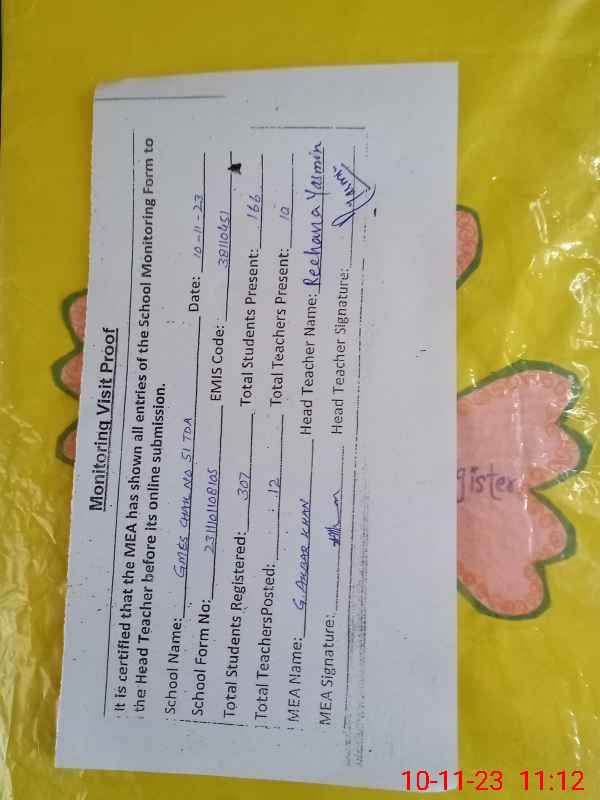 Monitoring Visit Proof
It is certified that the MEA has shown all entries of the School Monitoring Form to
the Head Teacher before its online submission.
School Name: GMES CHAK NO 51 TDA Date: 10-11-23
School Form No: 2311101108105 EMIS Code: 38110451
Total Students Registered: 307 Total Students Present: 166
Total TeachersPosted: 12 Total Teachers Present: 10
MEA Name: G. AKBAR KHAN Head Teacher Name: Reehana Yasmin
MEA Signature: Head Teacher Signature:
gister
10-11-23 11:12